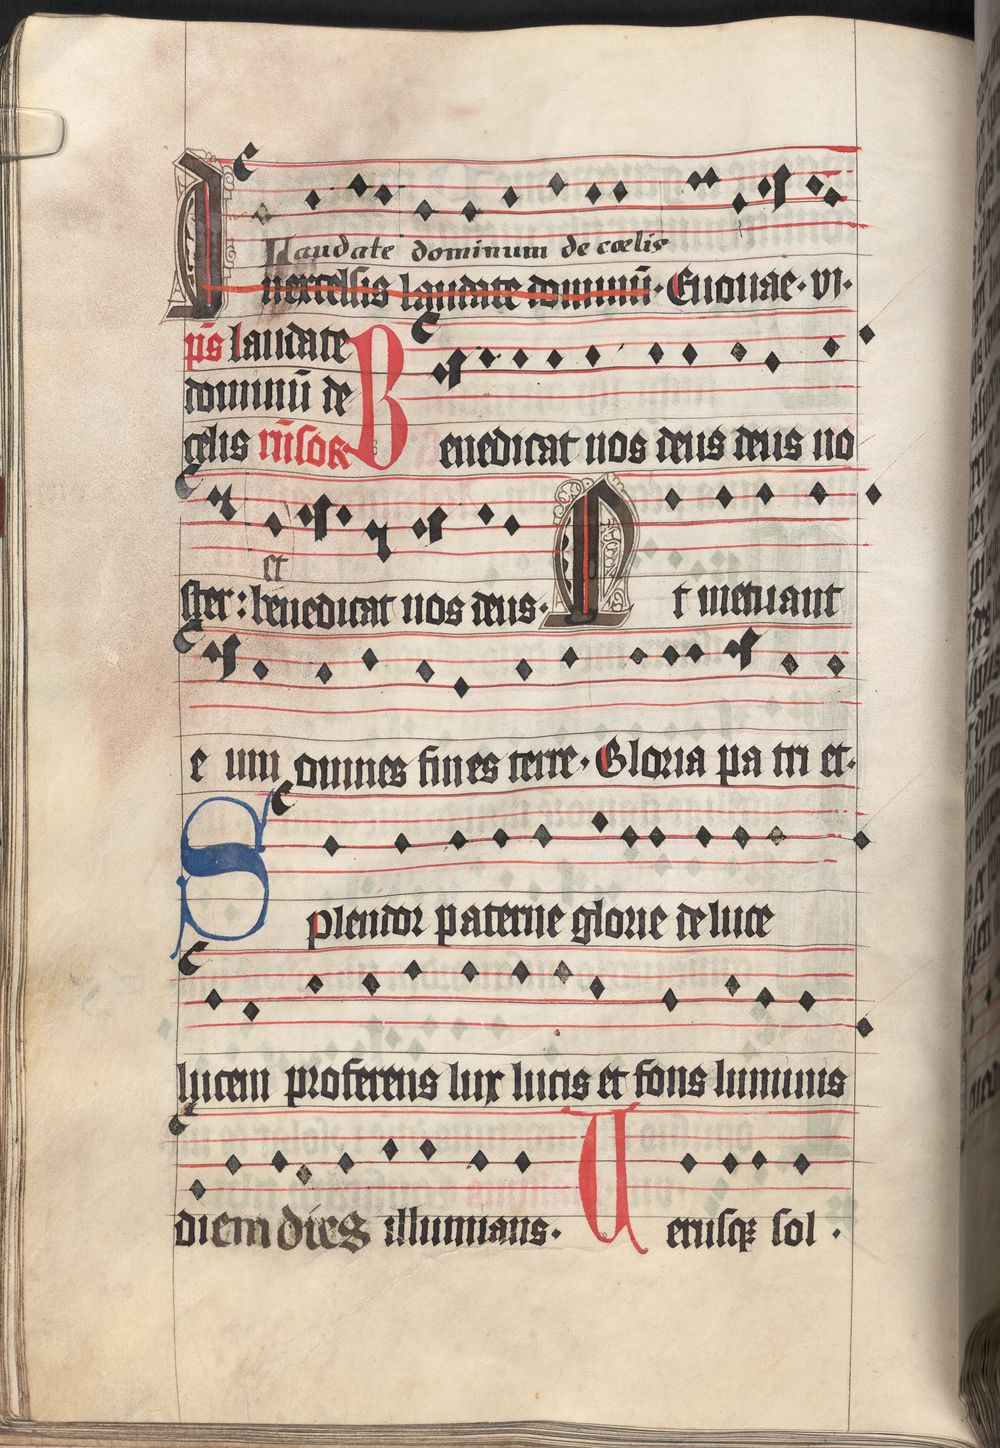 Laudate dominum de cœlis
In excelsis laudate dominū· Euouae· vi·
ps̄ laudate
dominū de
celis
Benedicat nos deus deus no
et
ster: benedicat nos deus· Et metuant
e um omnes fines terre· Gloria pa tri et·
Splendor paterne glorie de luce
lucem proferens lux lucis et fons luminis
diem dies illuminans· Verusqꝫ sol ·